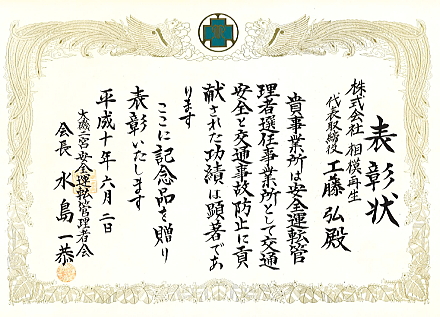 表彰状
株式会社 相模再生
代表取締役 工藤 弘殿
貴事業所は安全運転管
理者選任事業所として交通
安全と交通事故防止に貢
献された功績は顕著であ
ります
ここに記念品を贈り
表彰いたします
平成十年六月二日
大磯二宮安全運転管理者会
会長 水島一恭